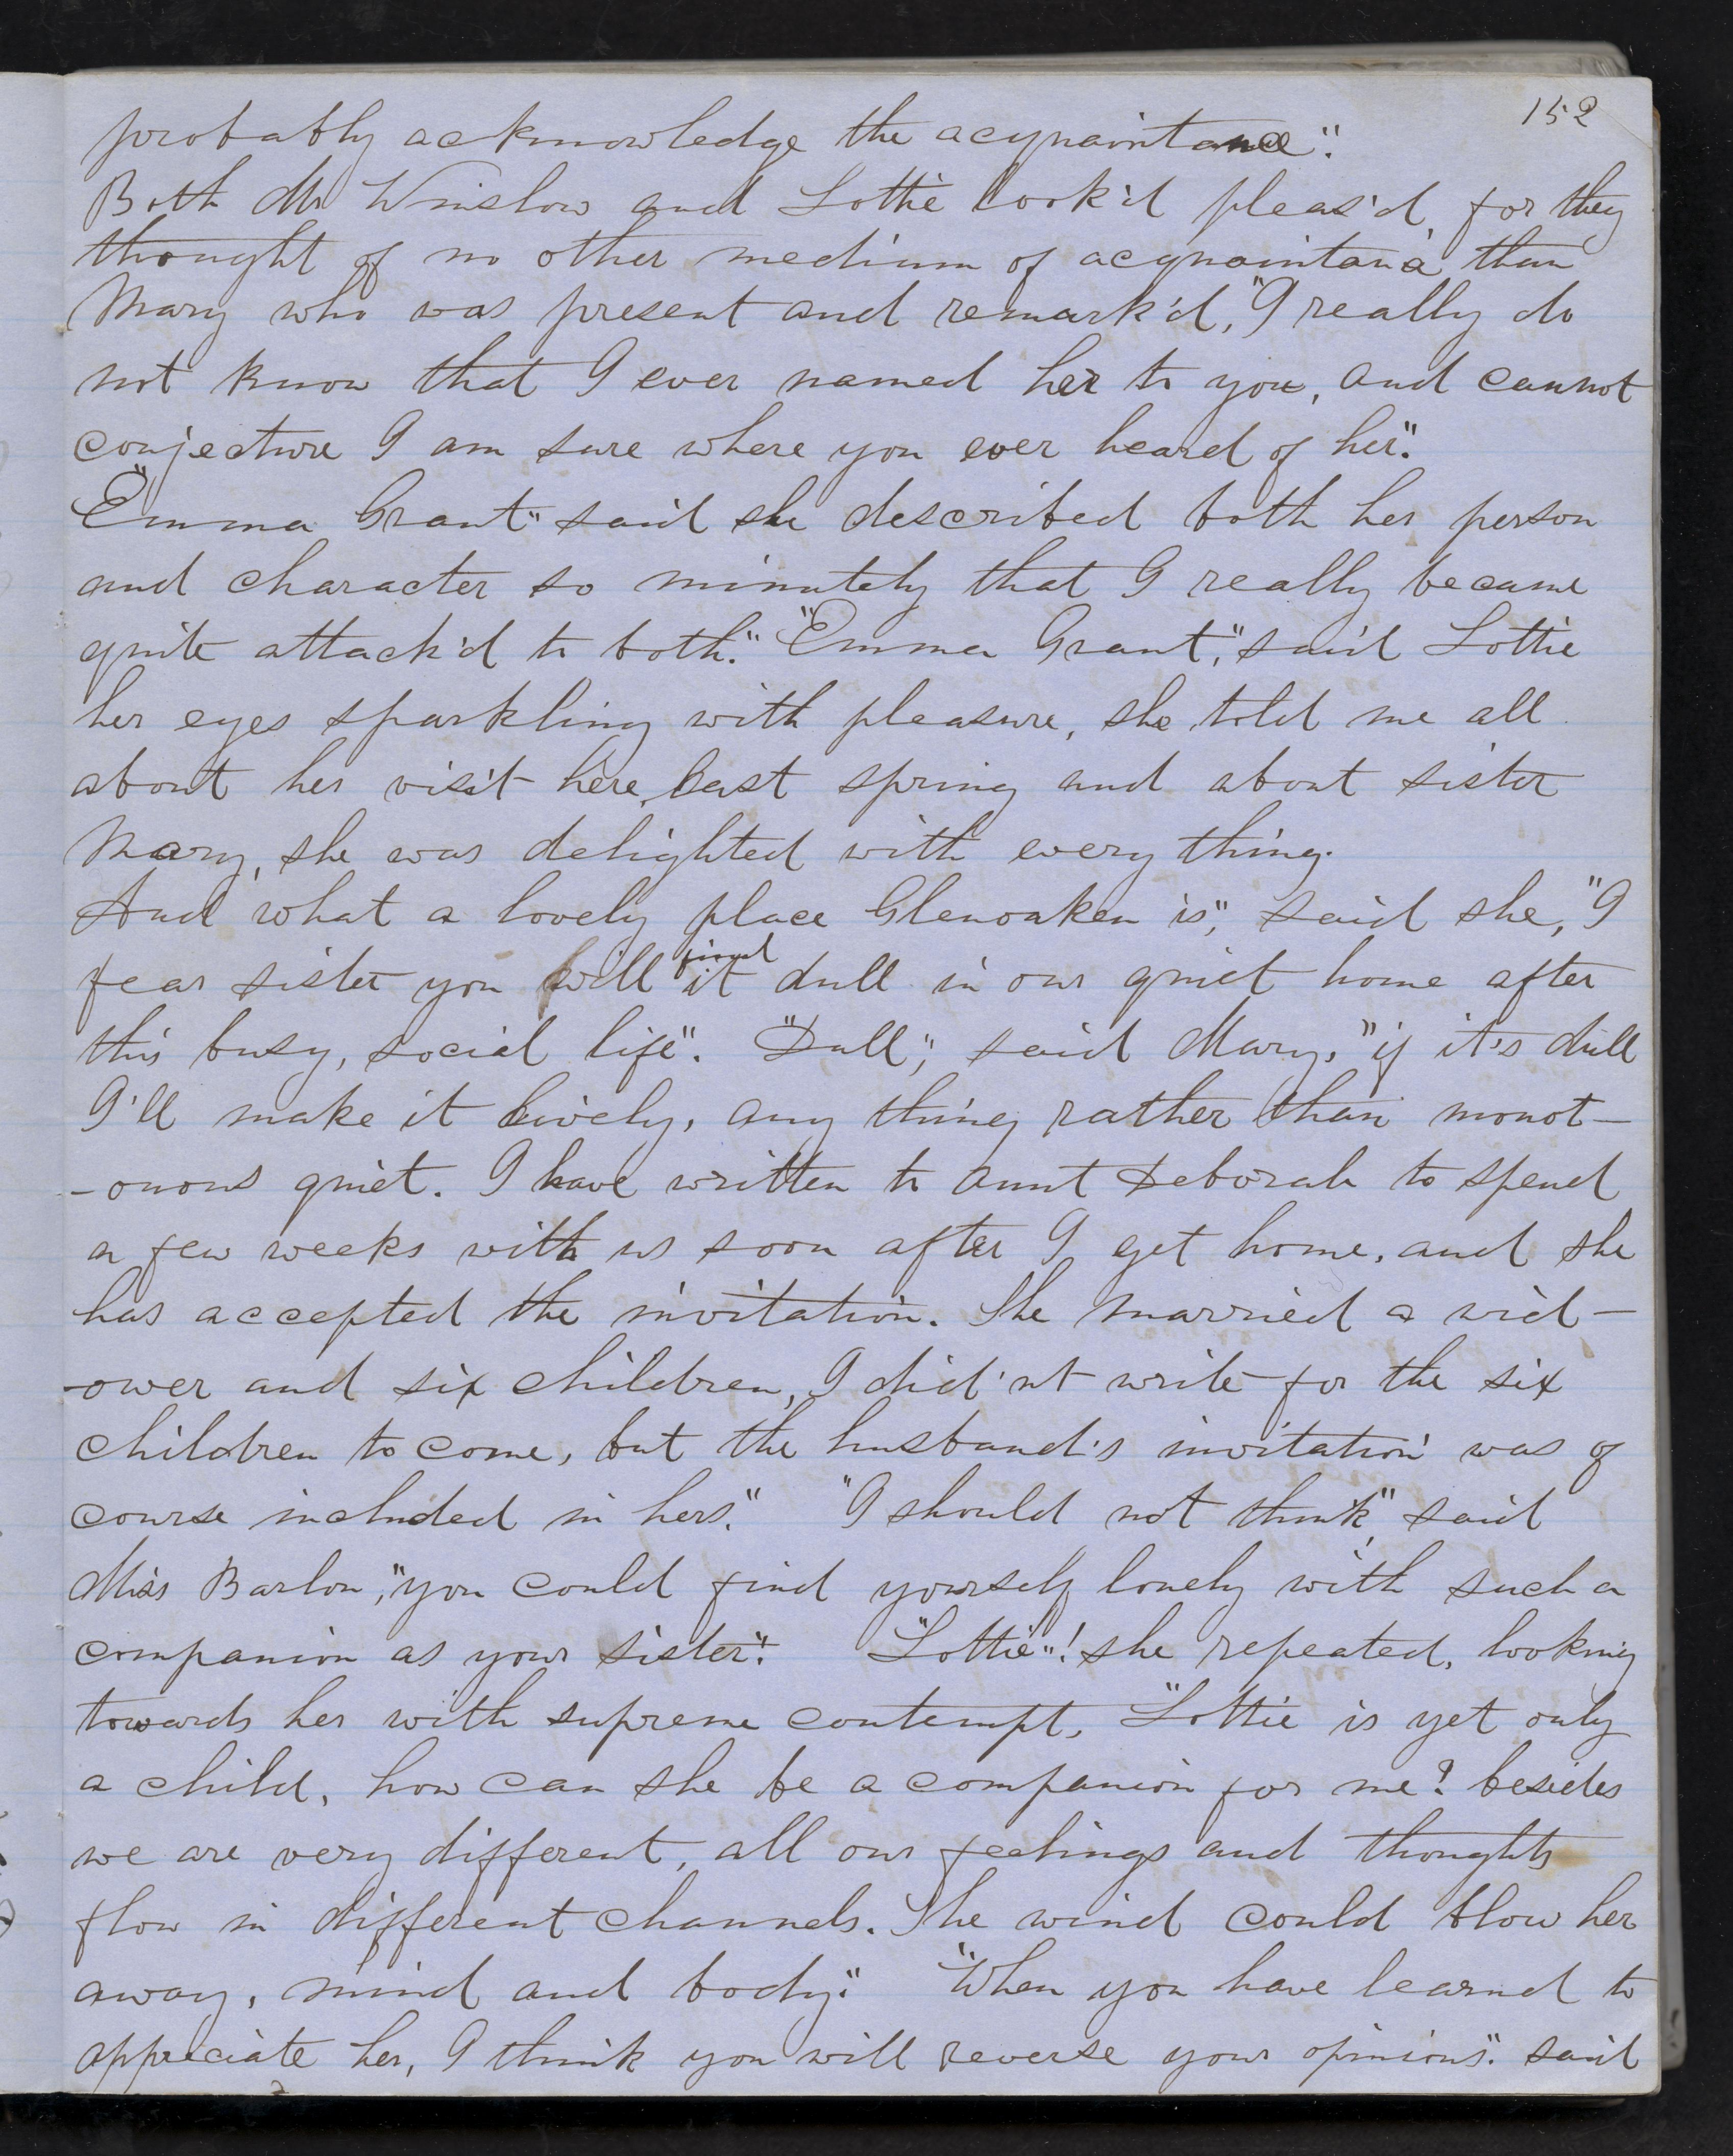 152
probably acknowledge the acquaintance".
Both Mr Winslow and Lottie look'd pleas'd, for they
thought of no other medium of acquaintance than
Mary who was present and remark'd, "I really do
not know that I ever named her to you, and cannot
conjecture I am sure where you ever heard of her".
"Emma Grant" said she described both her person
and character so minutely that I really became
quite attach'd to both." "Emma Grant," said Lottie
her eyes sparkling with pleasure, she told me all
about her visit here, last spring and about sister
Mary, she was delighted with every thing.
And what a lovely place Glenoaken is", said she, "I
fear sister you will find it dull in our quiet home after
this busy, social life". "Dull", said Mary, "if it's dull
I'll make it lively, any thing rather than monot-
-onous quiet. I have written to Aunt Deborah to spend
a few weeks with us soon after I get home, and she
has accepted the invitation. She married a wid-
-ower and six children, I did'nt write for the six
children to come, but the husband's invitation was of
course included in hers." "I should not think", said
Miss Barlow, "you could find yourself lonely with such a
companion as your sister". "Lottie"! she repeated, looking
towards her with supreme contempt, "Lottie is yet only
a child, how can she be a companion for me? besides
we are very different, all our feelings and thoughts
flow in different channels. The wind could blow her
away, mind and body." "When you have learned to
appreciate her, I think you will reverse your opinions". said